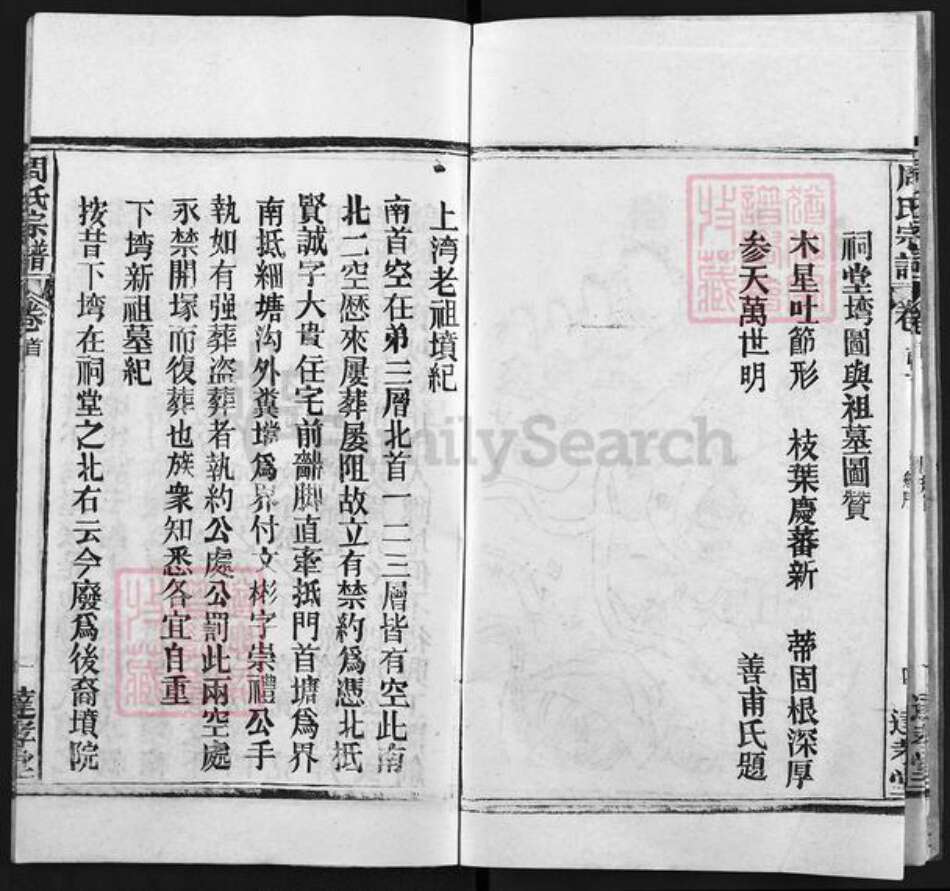 周氏宗譜
卷
達孝堂
祠堂塆圖與祖墓圖贊
木星吐節形 枝葉慶蕃新 蒂固根深厚
参天萬世明 善甫氏題
上湾老祖墳紀
南首空在弟三層北首一二三層皆有空此南
北二空歷來屢葬屢阻故立有禁約爲憑北抵
賢誠字大貴住宅前 脚直牽抵門首塘爲界
南抵細塘沟外糞 爲界付文彬字崇禮公手
執如有强葬盗葬者執約公處公罰此兩空處
永禁開塚而復葬也族衆知悉各宜自重
下塆新祖墓紀
按昔下塆在祠堂之北右云今廢爲後裔墳院
周氏宗譜
卷首
一
達孝堂
FamilySearch